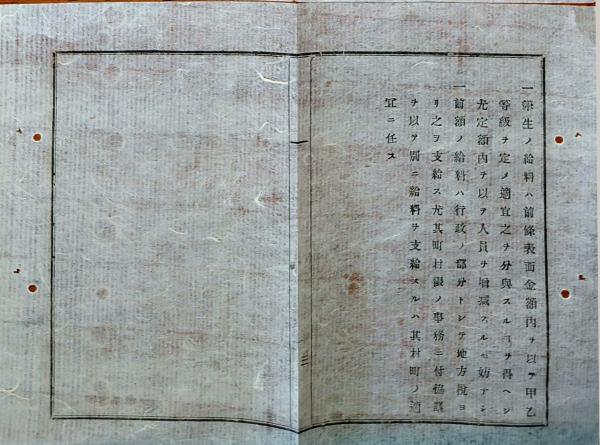 一筆生ノ給料ハ前條表面金額内ヲ以テ甲乙
等級ヲ定メ適宜之ヲ分與スルヿヲ得ヘシ
尤定額内ヲ以テ人員ヲ増減スルモ妨ナシ
一前額ノ給料ハ行政ノ部分トシテ地方税ヨ
リ之ヲ支給ス尤其町村限ノ事務ニ付協議
ヲ以テ別ニ給料ヲ支給スルハ其村町ノ適
宜ニ任ス
三